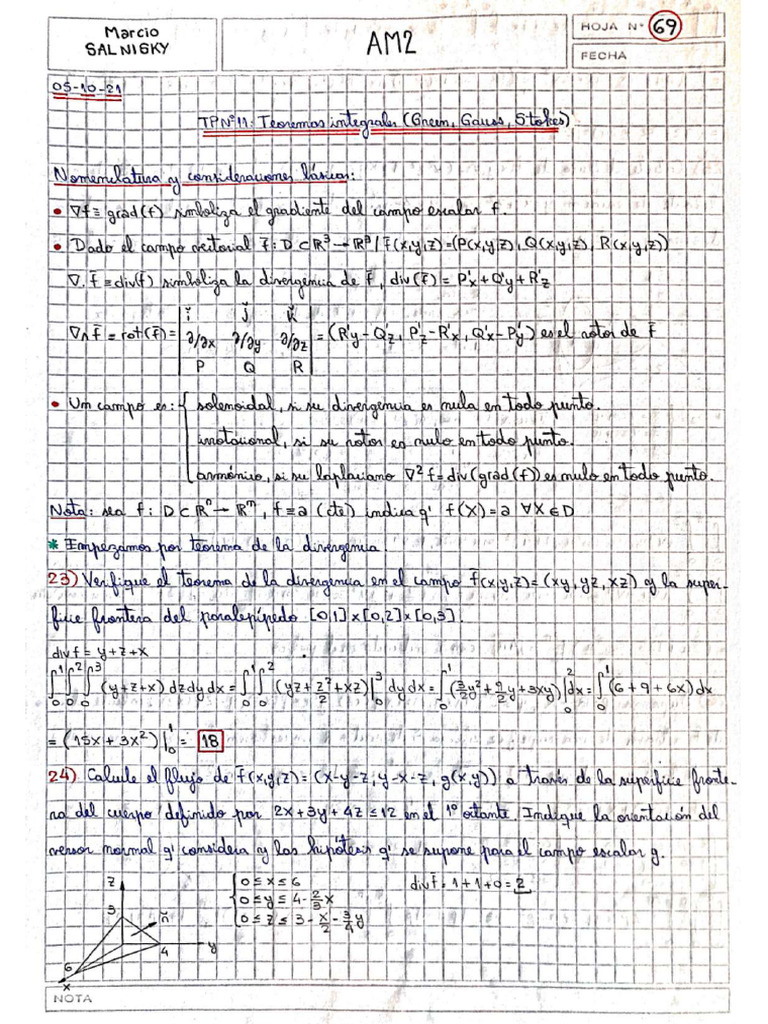 Marcio
SALNISKY
AM2
HOJA N° 69
FECHA
05-10-21
TP N°11: Teoremas integrales (Green, Gauss, Stokes)
Nomenclatura y consideraciones básicas:
• ∇f ≡ grad(f) simboliza el gradiente del campo escalar f.
• Dado el campo vectorial f̄: D ⊂ ℝ³ → ℝ³ / f̄(x,y,z) = (P(x,y,z), Q(x,y,z), R(x,y,z))
∇.f̄ ≡ div(f̄) simboliza la divergencia de f̄, div(f̄) = P'x + Q'y + R'z
∇∧f̄ ≡ rot(f̄) = | ǐ ǰ ǩ |
| ∂/∂x ∂/∂y ∂/∂z | = (R'y - Q'z, P'z - R'x, Q'x - P'y) es el rotor de f̄
| P Q R |
• Um campo es: { solenoidal, si su divergencia es nula en todo punto.
irrotacional, si su rotor es nulo en todo punto.
armónico, si su laplaciano ∇²f = div(grad(f)) es nulo en todo punto.
Nota: sea f: D ⊂ ℝⁿ → ℝᵐ, f ≡ a (cte) indica q' f(X) = a ∀X ∈ D
* Empezamos por teorema de la divergencia.
23) Verifique el teorema de la divergencia en el campo f̄(x,y,z) = (xy, yz, xz) y la super-
ficie frontera del paralepípedo [0,1]x[0,2]x[0,3].
div f = y+z+x
∫₀¹∫₀²∫₀³ (y+z+x) dz dy dx = ∫₀¹∫₀² (yz + z²/2 + xz)|₀³ dy dx = ∫₀¹ (3/2 y² + 9/2 y + 3xy)|₀² dx = ∫₀¹ (6+9+6x) dx
= (15x + 3x²)|₀¹ = 18
24) Calcule el flujo de f̄(x,y,z) = (x-y-z, y-x-z, g(x,y)) a través de la superficie fronte-
ra del cuerpo definido por 2x+3y+4z ≤ 12 en el 1° octante. Indique la orientación del
versor normal q' considera y las hipótesis q' se supone para el campo escalar g.
z
{ 0 ≤ x ≤ 6
div f̄ = 1+1+0 = 2
0 ≤ y ≤ 4 - 2/3 x
0 ≤ z ≤ 3 - x/2 - 3/4 y
3
ň
y
4
6
x
NOTA